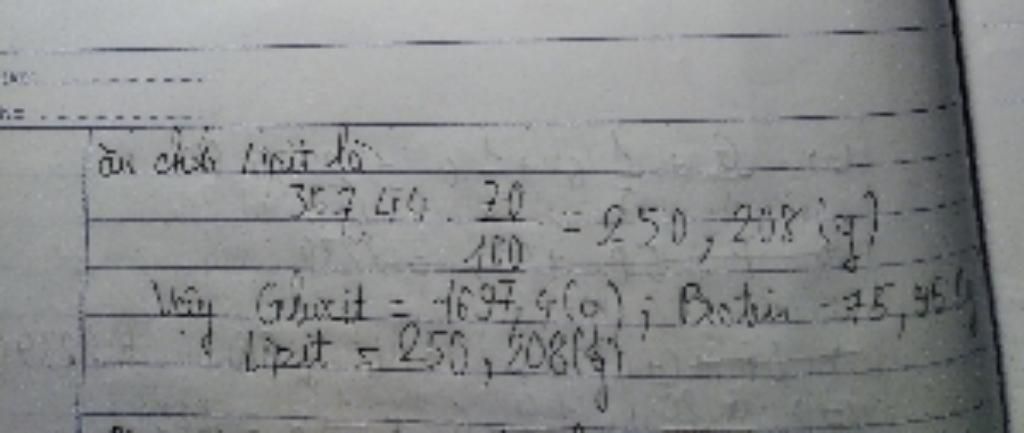 ăn chứa Lipit là
357,44 . 70/100 = 250,208 (g)
Vậy Gluxit = 1697,4 (g) ; Protein = 75,95 (g
Lipit = 250,208 (g)